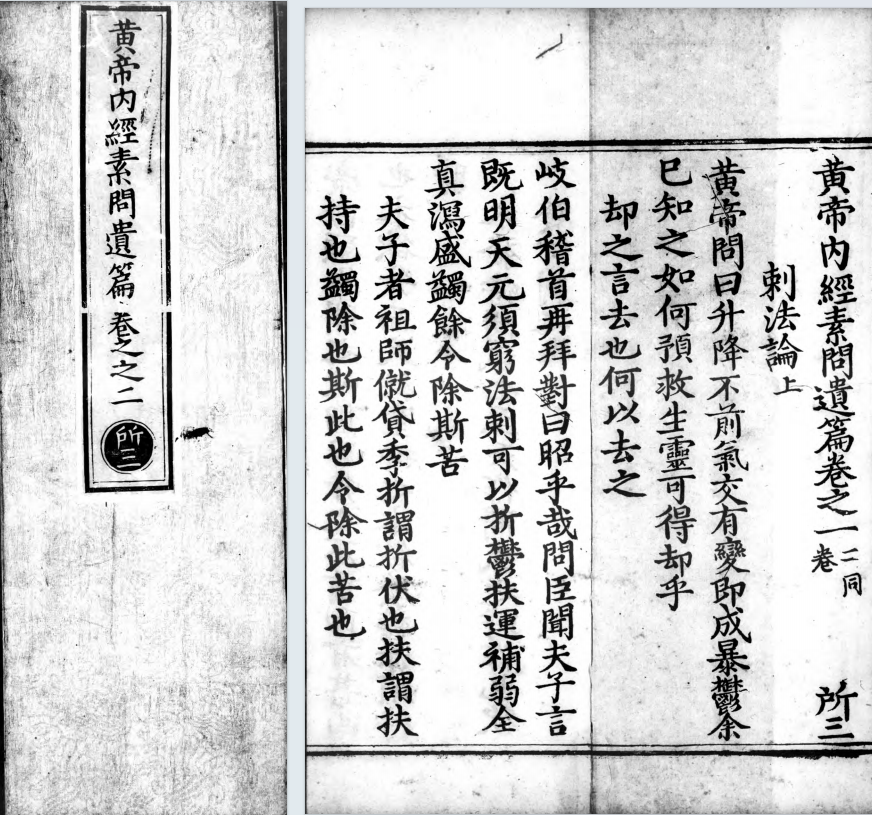 黄帝内經素問遺篇 卷之之二
所三
黄帝内經素問遺篇卷之一 二卷同 所三
刺法論上
黄帝問曰升降不前氣交有變即成暴鬱余
巳知之如何預救生靈可得却乎
却之言去也何以去之
岐伯稽首再拜對曰昭乎哉問臣聞夫子言
既明天元須窮法刺可以折鬱扶運補弱全
真瀉盛蠲餘令除斯苦
夫子者祖師僦貸季折謂折伏也扶謂扶
持也蠲除也斯此也令除此苦也